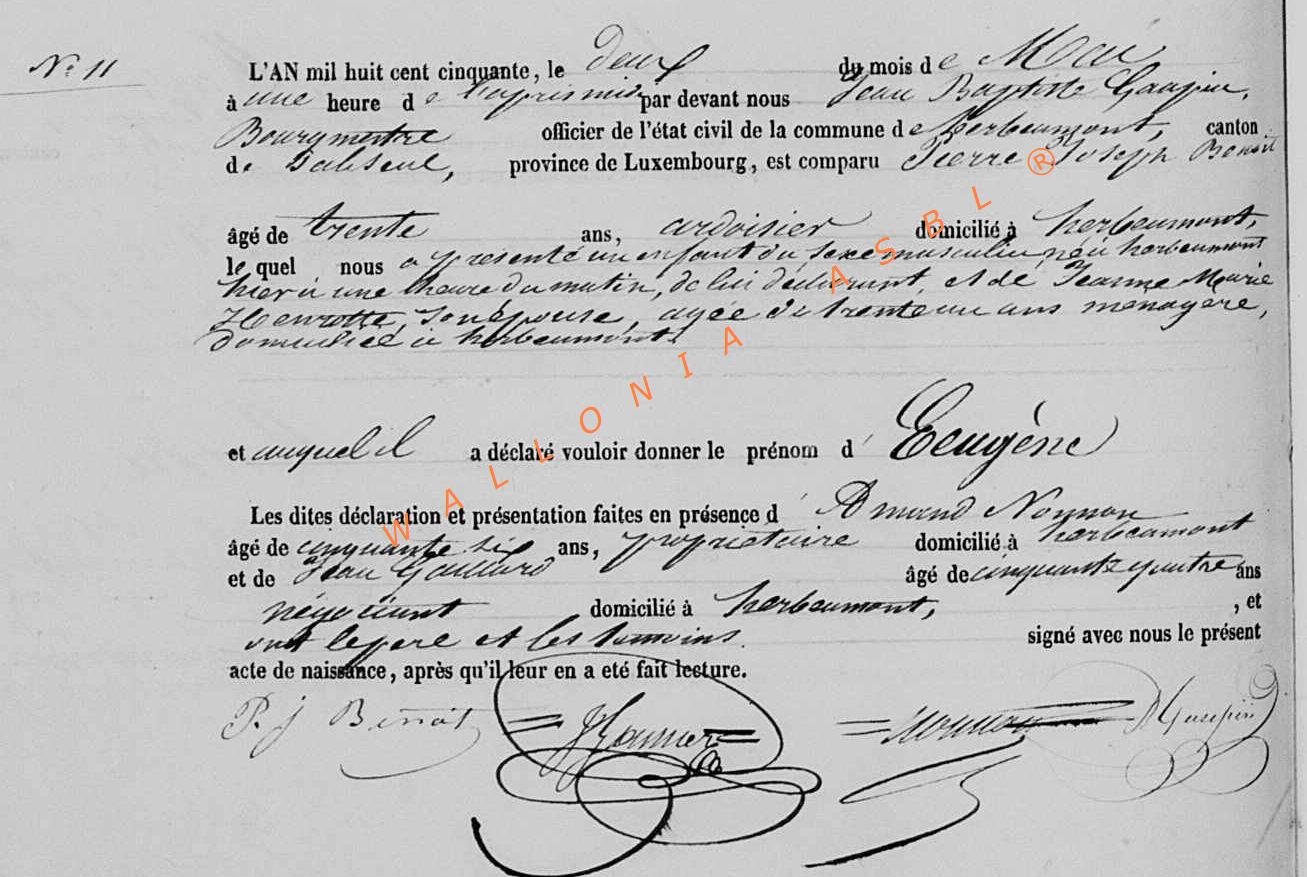 N° 11
L'AN mil huit cent cinquante, le deux du mois de Mai
à une heure de l'après midi par devant nous Jean Baptiste Gaupin,
Bourgmestre officier de l'état civil de la commune de herbeumont, canton
de Paliseul, province de Luxembourg, est comparu Pierre Joseph Benoit
âgé de trente ans, ardoisier domicilié à herbeumont,
le quel nous a présenté un enfant du sexe masculin, né à herbeumont
hier à une heure du matin, de lui déclarant, et de Jeanne Marie
Henrotte, son épouse, agée de trente un ans ménagère,
domiciliée à herbeumont.
et auquel il a déclaré vouloir donner le prénom d' Eeugène
Les dites déclaration et présentation faites en présence d' Amand Nonnon
âgé de cinquante six ans, propriétaire domicilié à herbeumont
et de Jean Gaillard âgé de cinquante quatre ans
négociant domicilié à herbeumont, , et
ont le père et les témoins signé avec nous le présent
acte de naissance, après qu'il leur en a eté fait lecture.
P. J Benoit Nonnon
WALLONIA ASBL ®